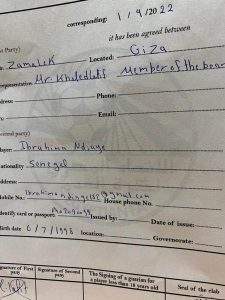 corresponding: 1 / 9 / 2022
it has been agreed between
st Party)
Zamalek Located: Giza
epresentation Mr. Khaled Member of the boar
ddress: Phone:
Email:
cond party)
layer: Ibrahima Ndiaye
ationality Senegal
Address:
Mobile No.: House phone No.
Identify card or passport: Issued by: Date of issue:
Birth date 6 / 7 / 1998 location: Governorate:
Signature of First party
Signature of Second party
The Signing of a guardian for a player less than 18 years old
Seal of the club